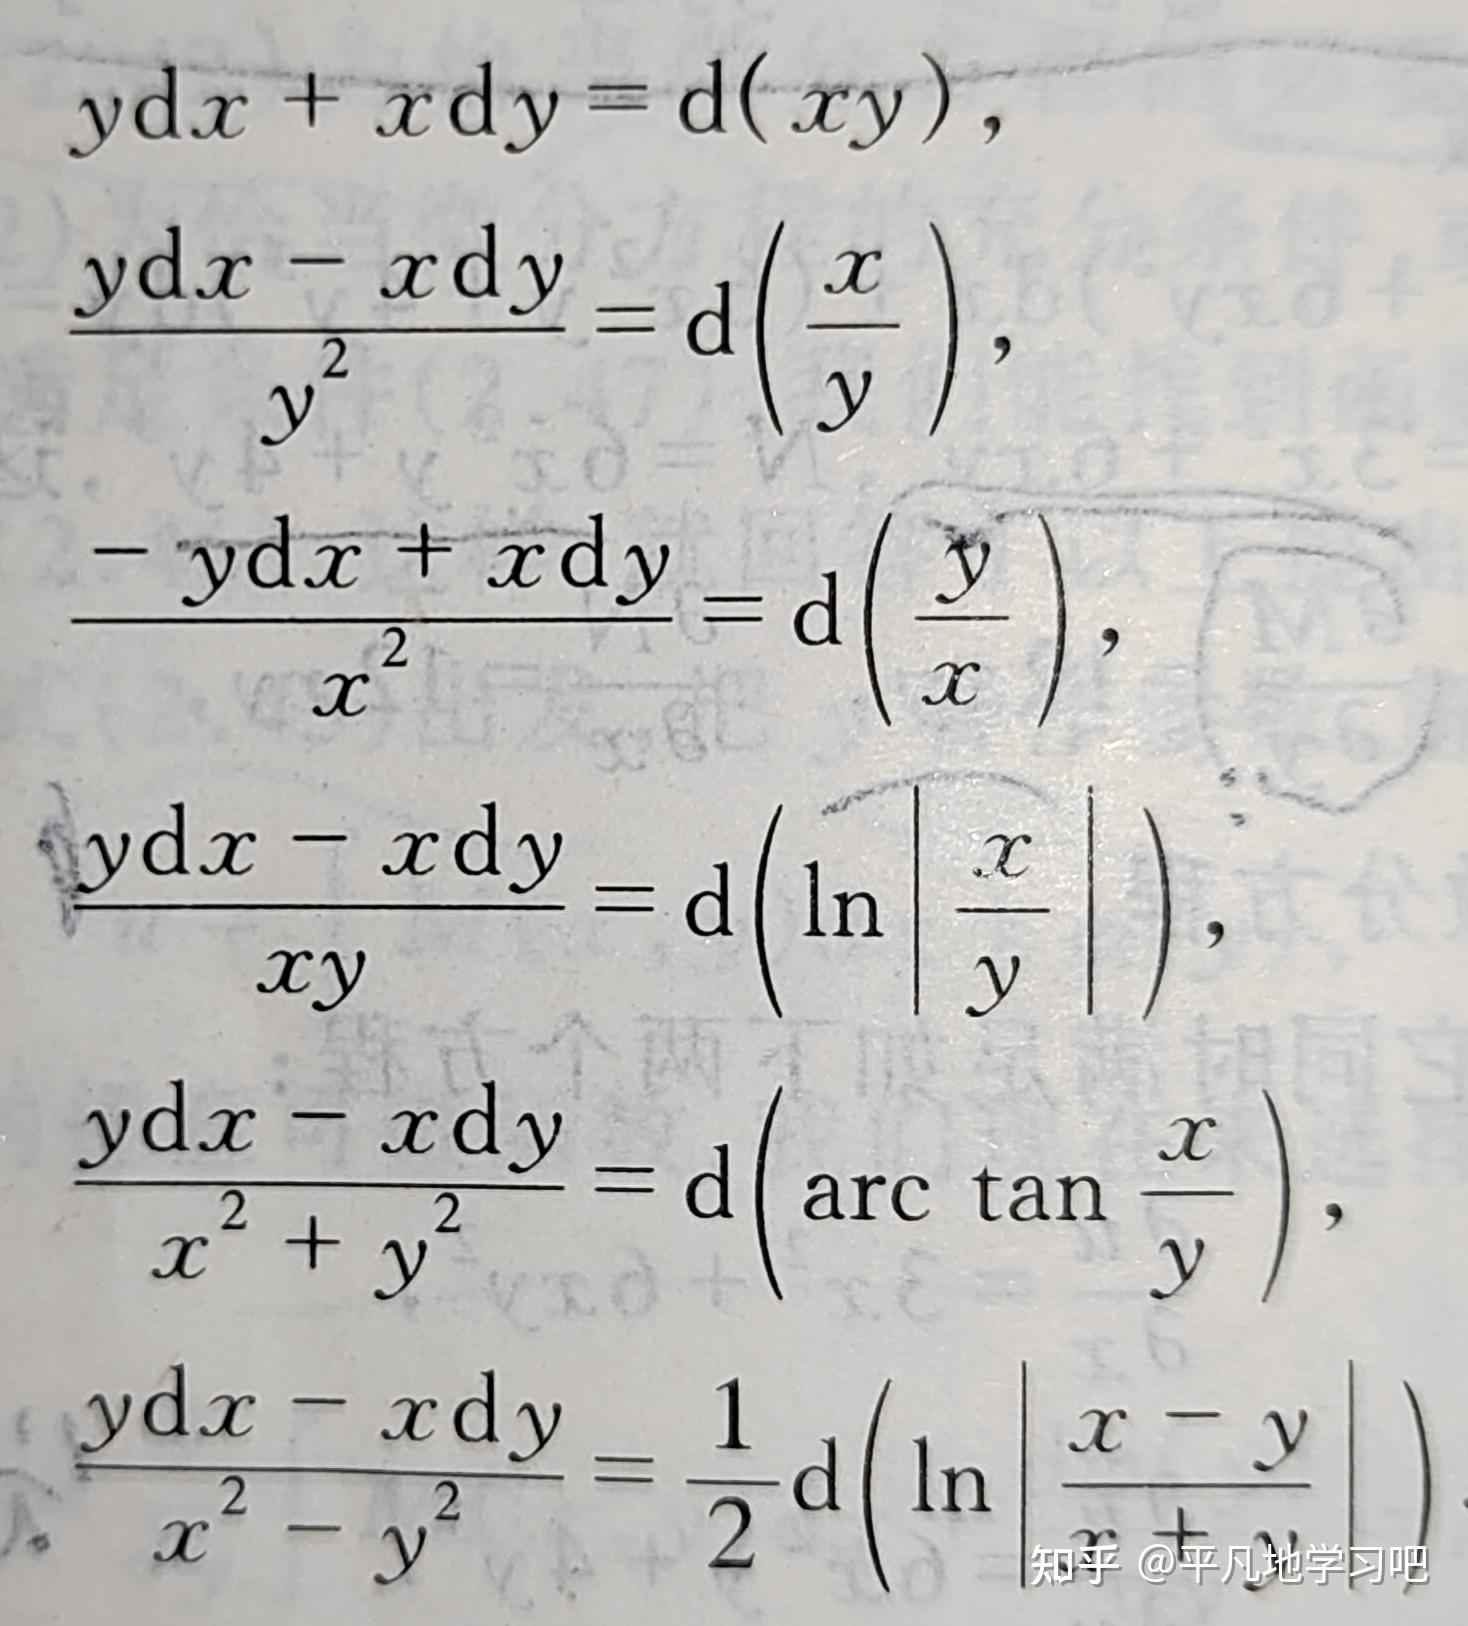 ydx + xdy = d(xy),
\frac{ydx - xdy}{y^2} = d\left(\frac{x}{y}\right),
\frac{-ydx + xdy}{x^2} = d\left(\frac{y}{x}\right),
\frac{ydx - xdy}{xy} = d\left(\ln\left|\frac{x}{y}\right|\right),
\frac{ydx - xdy}{x^2 + y^2} = d\left(arc tan \frac{x}{y}\right),
\frac{ydx - xdy}{x^2 - y^2} = \frac{1}{2}d\left(\ln\left|\frac{x - y}{x + y}\right|\right)
知乎 @平凡地学习吧